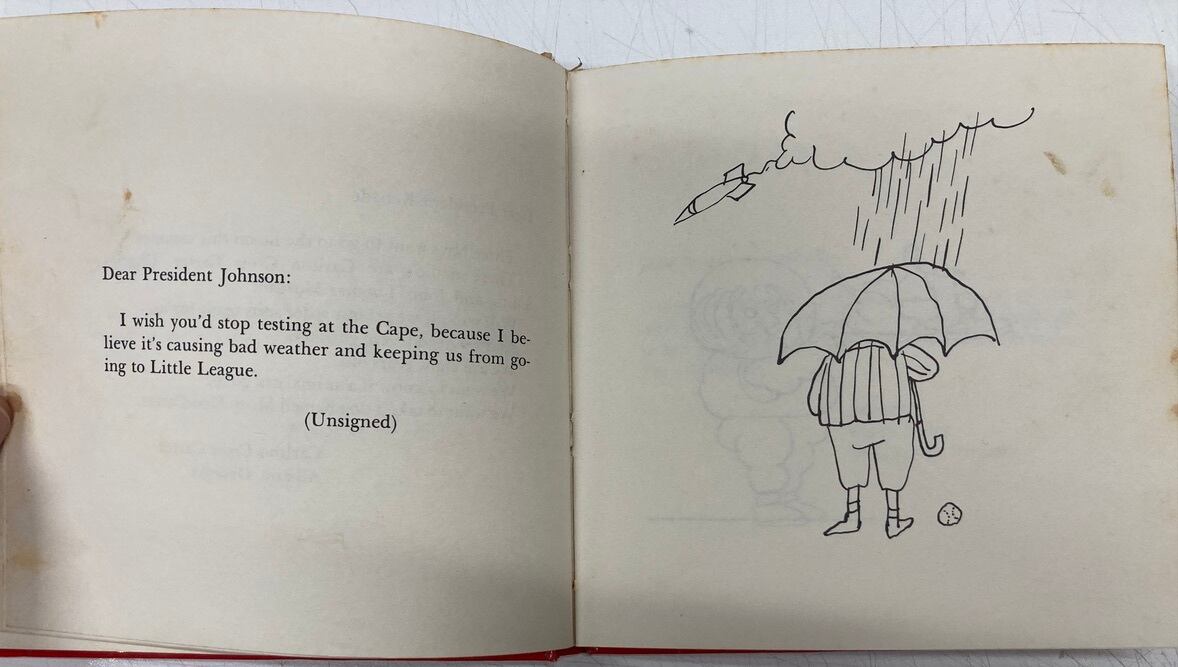 Dear President Johnson:
I wish you'd stop testing at the Cape, because I be-
lieve it's causing bad weather and keeping us from go-
ing to Little League.
(Unsigned)